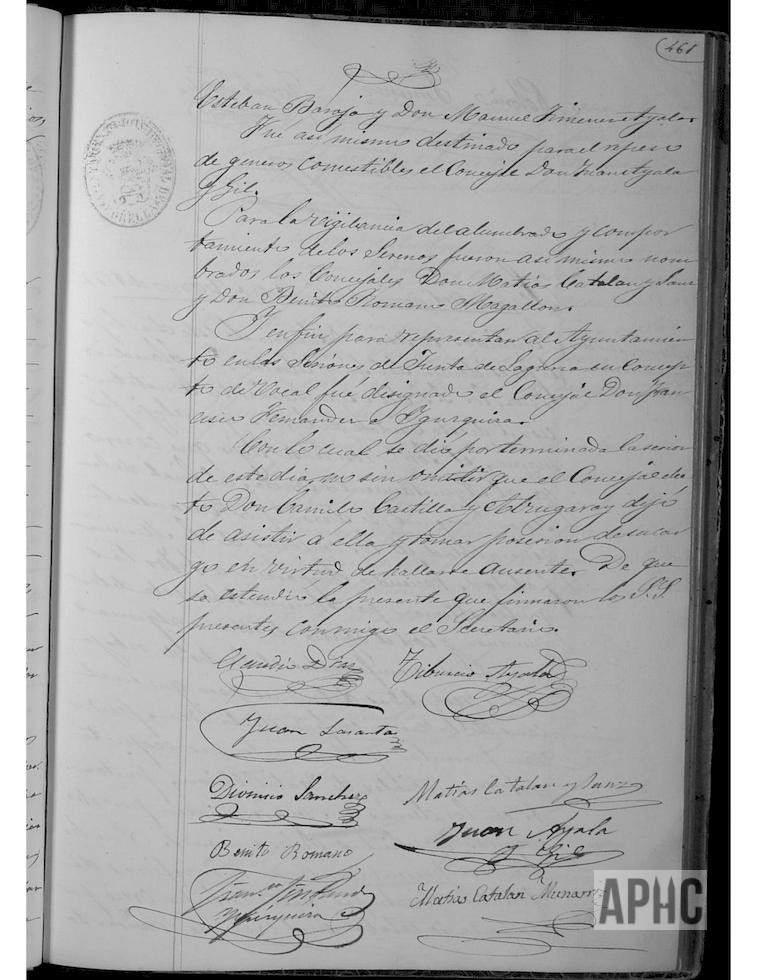 461
Esteban Baroja y Don Manuel Jimenez Ayala.
Fue asi mismo destinado para el repeso
de generos comestibles el Concejal Don Juan Ayala
y Gil.
Para la vigilancia del alumbrado y compor
tamiento de los Serenos fueron asi mismo nom
brados los Concejales Don Matías Catalan y Sanz
y Don Benito Romano Magallon.
Y en fin para representar al Ayuntamien
to en las Sesiones de Junta de Laguna en concep
to de Vocal fué designado el Concejal Don Fran
cisco Fernandez
Con lo cual se dió por terminada la sesion
de este dia, no sin omitir que el Concejal elec
to Don Camilo Castilla y dejó
de asistir á ella y tomar posesion de su car
go en virtud de hallarse ausente. De que
se estendió la presente que firmaron los S.S.
presentes conmigo el Secretario.
Claudio Diaz Tiburcio Ayala
Juan Lasanta
Dionisio Sanchez Matías Catalan y Sanz
Juan Ayala
y Gil
Benito Romano
Matías Catalan
APHC